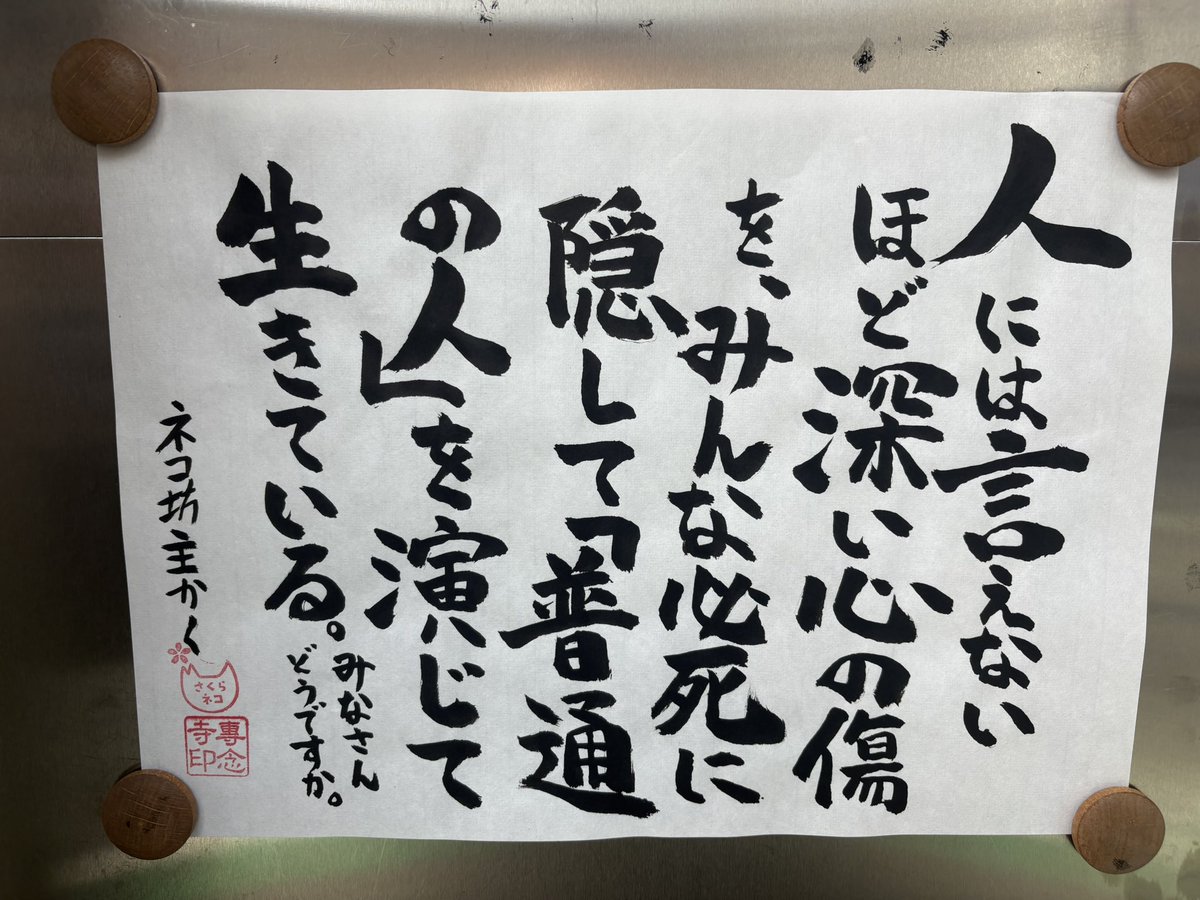 人には言えない
ほど深い心の傷
を、みんな必死に
隠して「普通
の人」を演じて
生きている。
みなさん
どうですか。
ネコ坊主かく
さくら
ネコ
専念
寺印